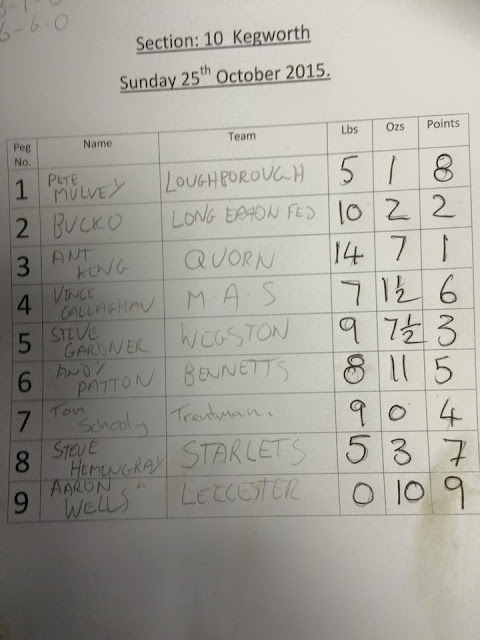 6-6-0
Section: 10 Kegworth
Sunday 25th October 2015.
Peg No. Name Team Lbs Ozs Points
1 PETE MULVEY LOUGHBOROUGH 5 1 8
2 BUCKO LONG EATON FED 10 2 2
3 ANT KENG QUORN 14 7 1
4 VINCE CALLAGHAN M A S 7 1½ 6
5 STEVE GARDNER WIGSTON 9 7½ 3
6 ANDY PATTON BENNETTS 8 11 5
7 Tom Schooly Trentman. 9 0 4
8 STEVE HEMINGRAY STARLETS 5 3 7
9 AARON WELLS LEICESTER 0 10 9